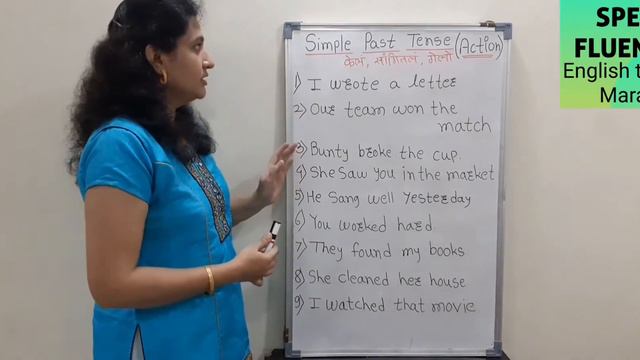 Simple Past Tense (Action)
केलं, सांगितलं, गेलो
1) I wrote a letter
2) Our team won the
match
3) Bunty broke the cup.
4) She saw you in the market
5) He sang well yesterday
6) You worked hard
7) They found my books
8) She cleaned her house
9) I watched that movie
SPE
FLUEN
English t
Mara